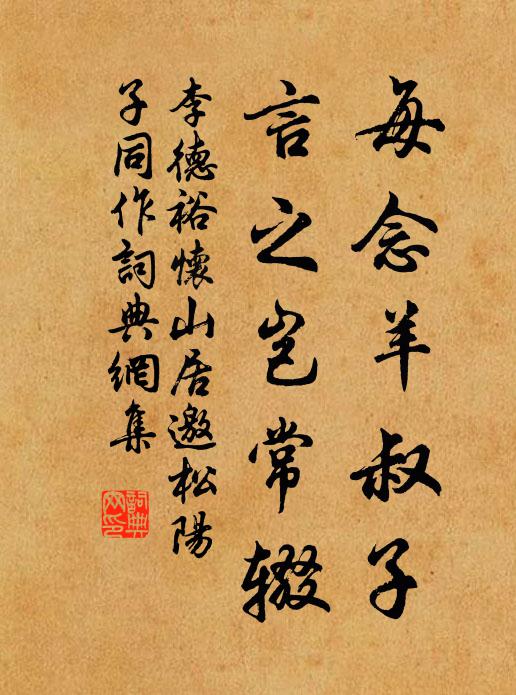 每念羊叔子
言之岂常辍
李德裕懷山居邀松陽
子同作詞典網集
詞典
网印